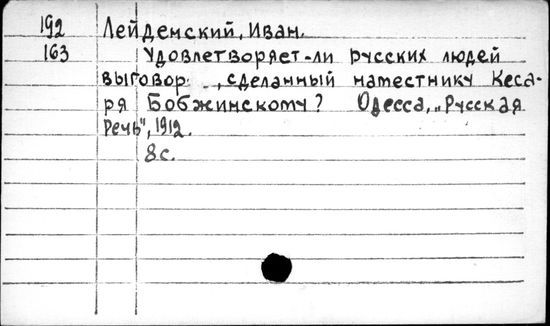 192 Лейденский, Иван.
163 Удовлетворяет-ли русских людей
выговор , сделанный наместнику Кеса-
ря Бобжинскому? Одесса, „Русская
Речь", 1912.
8 с.